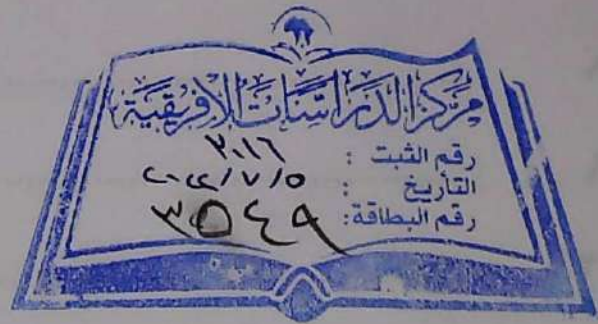 مركز الدراسات الأفريقية
رقم الثبت : ٣٠١٦
التأريخ : ٢٠٢٢/٧/٥
رقم البطاقة: ٣٥٤٩